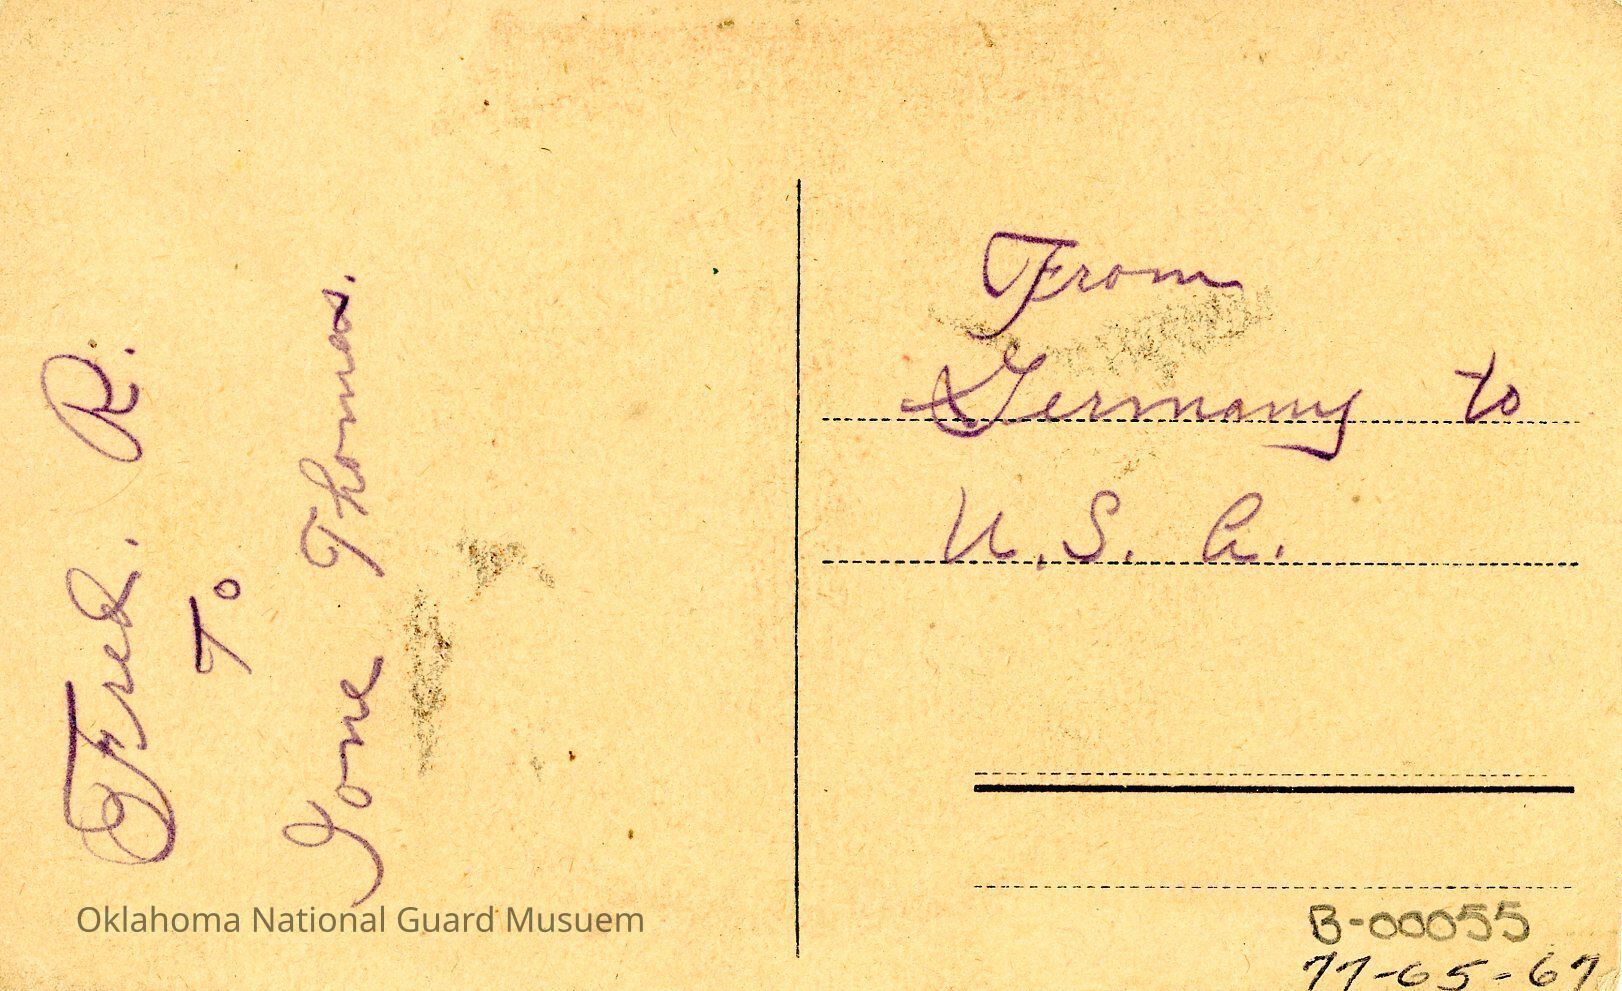 Fred. R.
To
Ione Thomas.
From
Germany to
U.S. A.
Oklahoma National Guard Musuem
B-00055
77-65-67